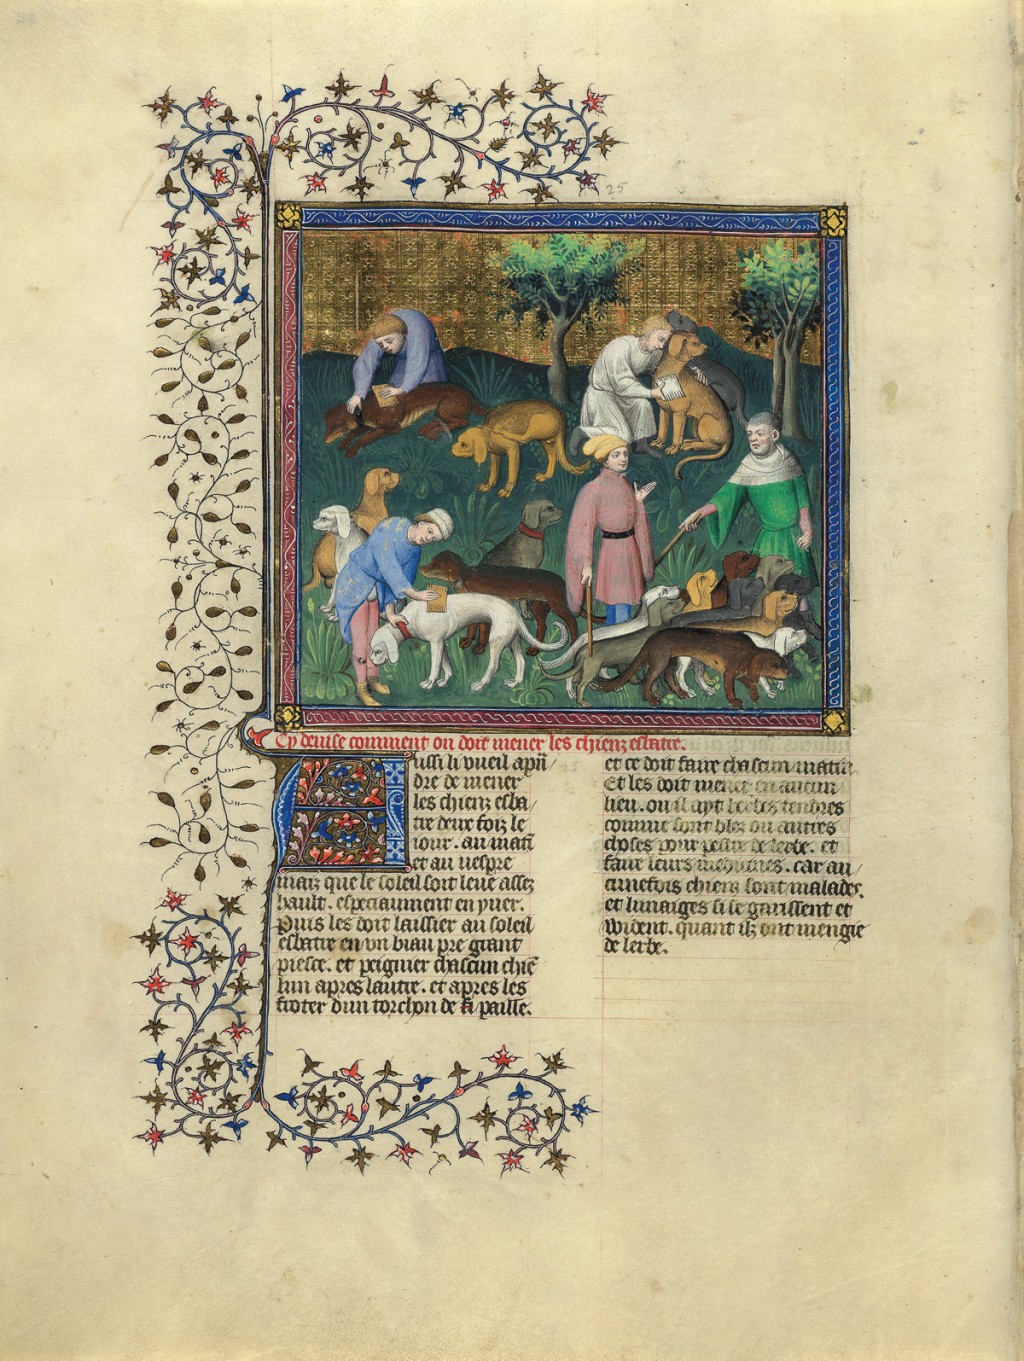 25
Cy deuise comment on doit mener les chienz esbatre.
Aussi li vueil apñ
dre de mener
les chienz esba/
tre deux foiz le
iour. au mati
et au uespre
maiz que le soleil soit leue assez
hault. especiaument en yuer.
Puis les doit laissier au soleil
esbatre en vn biau pre grant
piesce. et peignier chascun chiē
lun apres lautre. et apres les
froter dun torchon de paille.
et ce doit faire chascun matin
Et les doit mener en aucun
lieu. ou il ayt herbes tendres
comme sont blez ou autres
choses pour pestre de lerbe. et
faire leurs medicines. car au
cunefois chienz sont malades.
et lunaiges si se garissent et
Wident. quant ilz ont mengie
de lerbe.